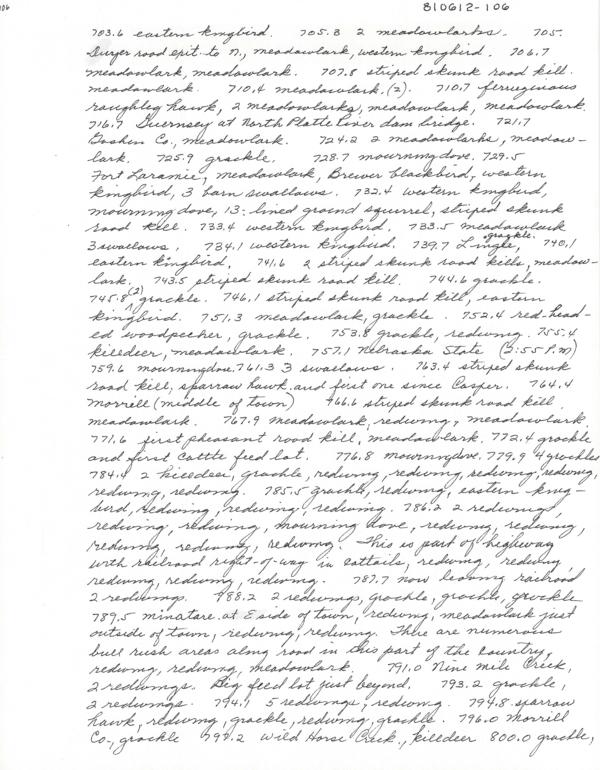 106
810612-106
703.6 eastern kingbird. 705.8 2 meadowlarks. 705.
road exit to N., meadowlark, western kingbird. 706.7
meadowlark, meadowlark. 707.8 striped skunk road kill.
meadowlark. 710.4 meadowlark. (2). 710.7 ferruginous
roughleg hawk, 2 meadowlarks, meadowlark, meadowlark.
716.7 Guernsey at North Platte River dam bridge. 721.7
Goshen Co., meadowlark. 724.2 2 meadowlarks, meadow-
lark. 725.9 grackle. 728.7 mourning dove. 729.5
Fort Laramie, meadowlark, Brewer blackbird, western
kingbird, 3 barn swallows. 732.4 western kingbird,
mourning dove, 13-lined ground squirrel, striped skunk
road kill. 733.4 western kingbird. 733.5 meadowlark
3 swallows. 734.1 western kingbird. 739.7 Lingle, grackle. 740.1
eastern kingbird. 741.6 2 striped skunk road kills, meadow-
lark. 743.5 striped skunk road kill. 744.6 grackle.
745.8 (2) grackle. 746.1 striped skunk road kill, eastern
kingbird. 751.3 meadowlark, grackle. 752.4 red-head-
ed woodpecker, grackle. 753.8 grackle, redwing. 755.4
killdeer, meadowlark. 757.1 Nebraska State (2:55 P.M)
759.6 mourning dove. 761.3 3 swallows. 763.4 striped skunk
road kill, sparrow hawk and first one since Casper. 764.4
Morrill (middle of town) 766.6 striped skunk road kill
meadowlark. 767.9 meadowlark, redwing, meadowlark.
771.6 first pheasant road kill, meadowlark. 772.4 grackle
and first cattle feed lot. 776.8 mourning dove. 779.9 4 grackles
784.4 2 killdeer, grackle, redwing, redwing, redwing, redwing,
redwing, redwing. 785.5 grackle, redwing, eastern king-
bird, redwing, redwing, redwing. 786.2 2 redwings,
redwing, redwing, mourning dove, redwing, redwing,
redwing, redwing, redwing. This is part of highway
with railroad right-of-way in cattails, redwing, redwing,
redwing, redwing, redwing. 787.7 now leaving railroad
2 redwings. 788.2 2 redwings, grackle, grackle, grackle
789.5 Minatare at E side of town, redwing, meadowlark just
outside of town, redwing, redwing. There are numerous
bull rush areas along road in this part of the country,
redwing, redwing, meadowlark. 791.0 Nine Mile Creek,
2 redwings. Big feed lot just beyond. 793.2 grackle,
2 redwings. 794.1 5 redwings, redwing. 794.8 sparrow
hawk, redwing, grackle, redwing, grackle. 796.0 Morrill
Co., grackle 799.2 Wild Horse Creek., killdeer 800.0 grackle,